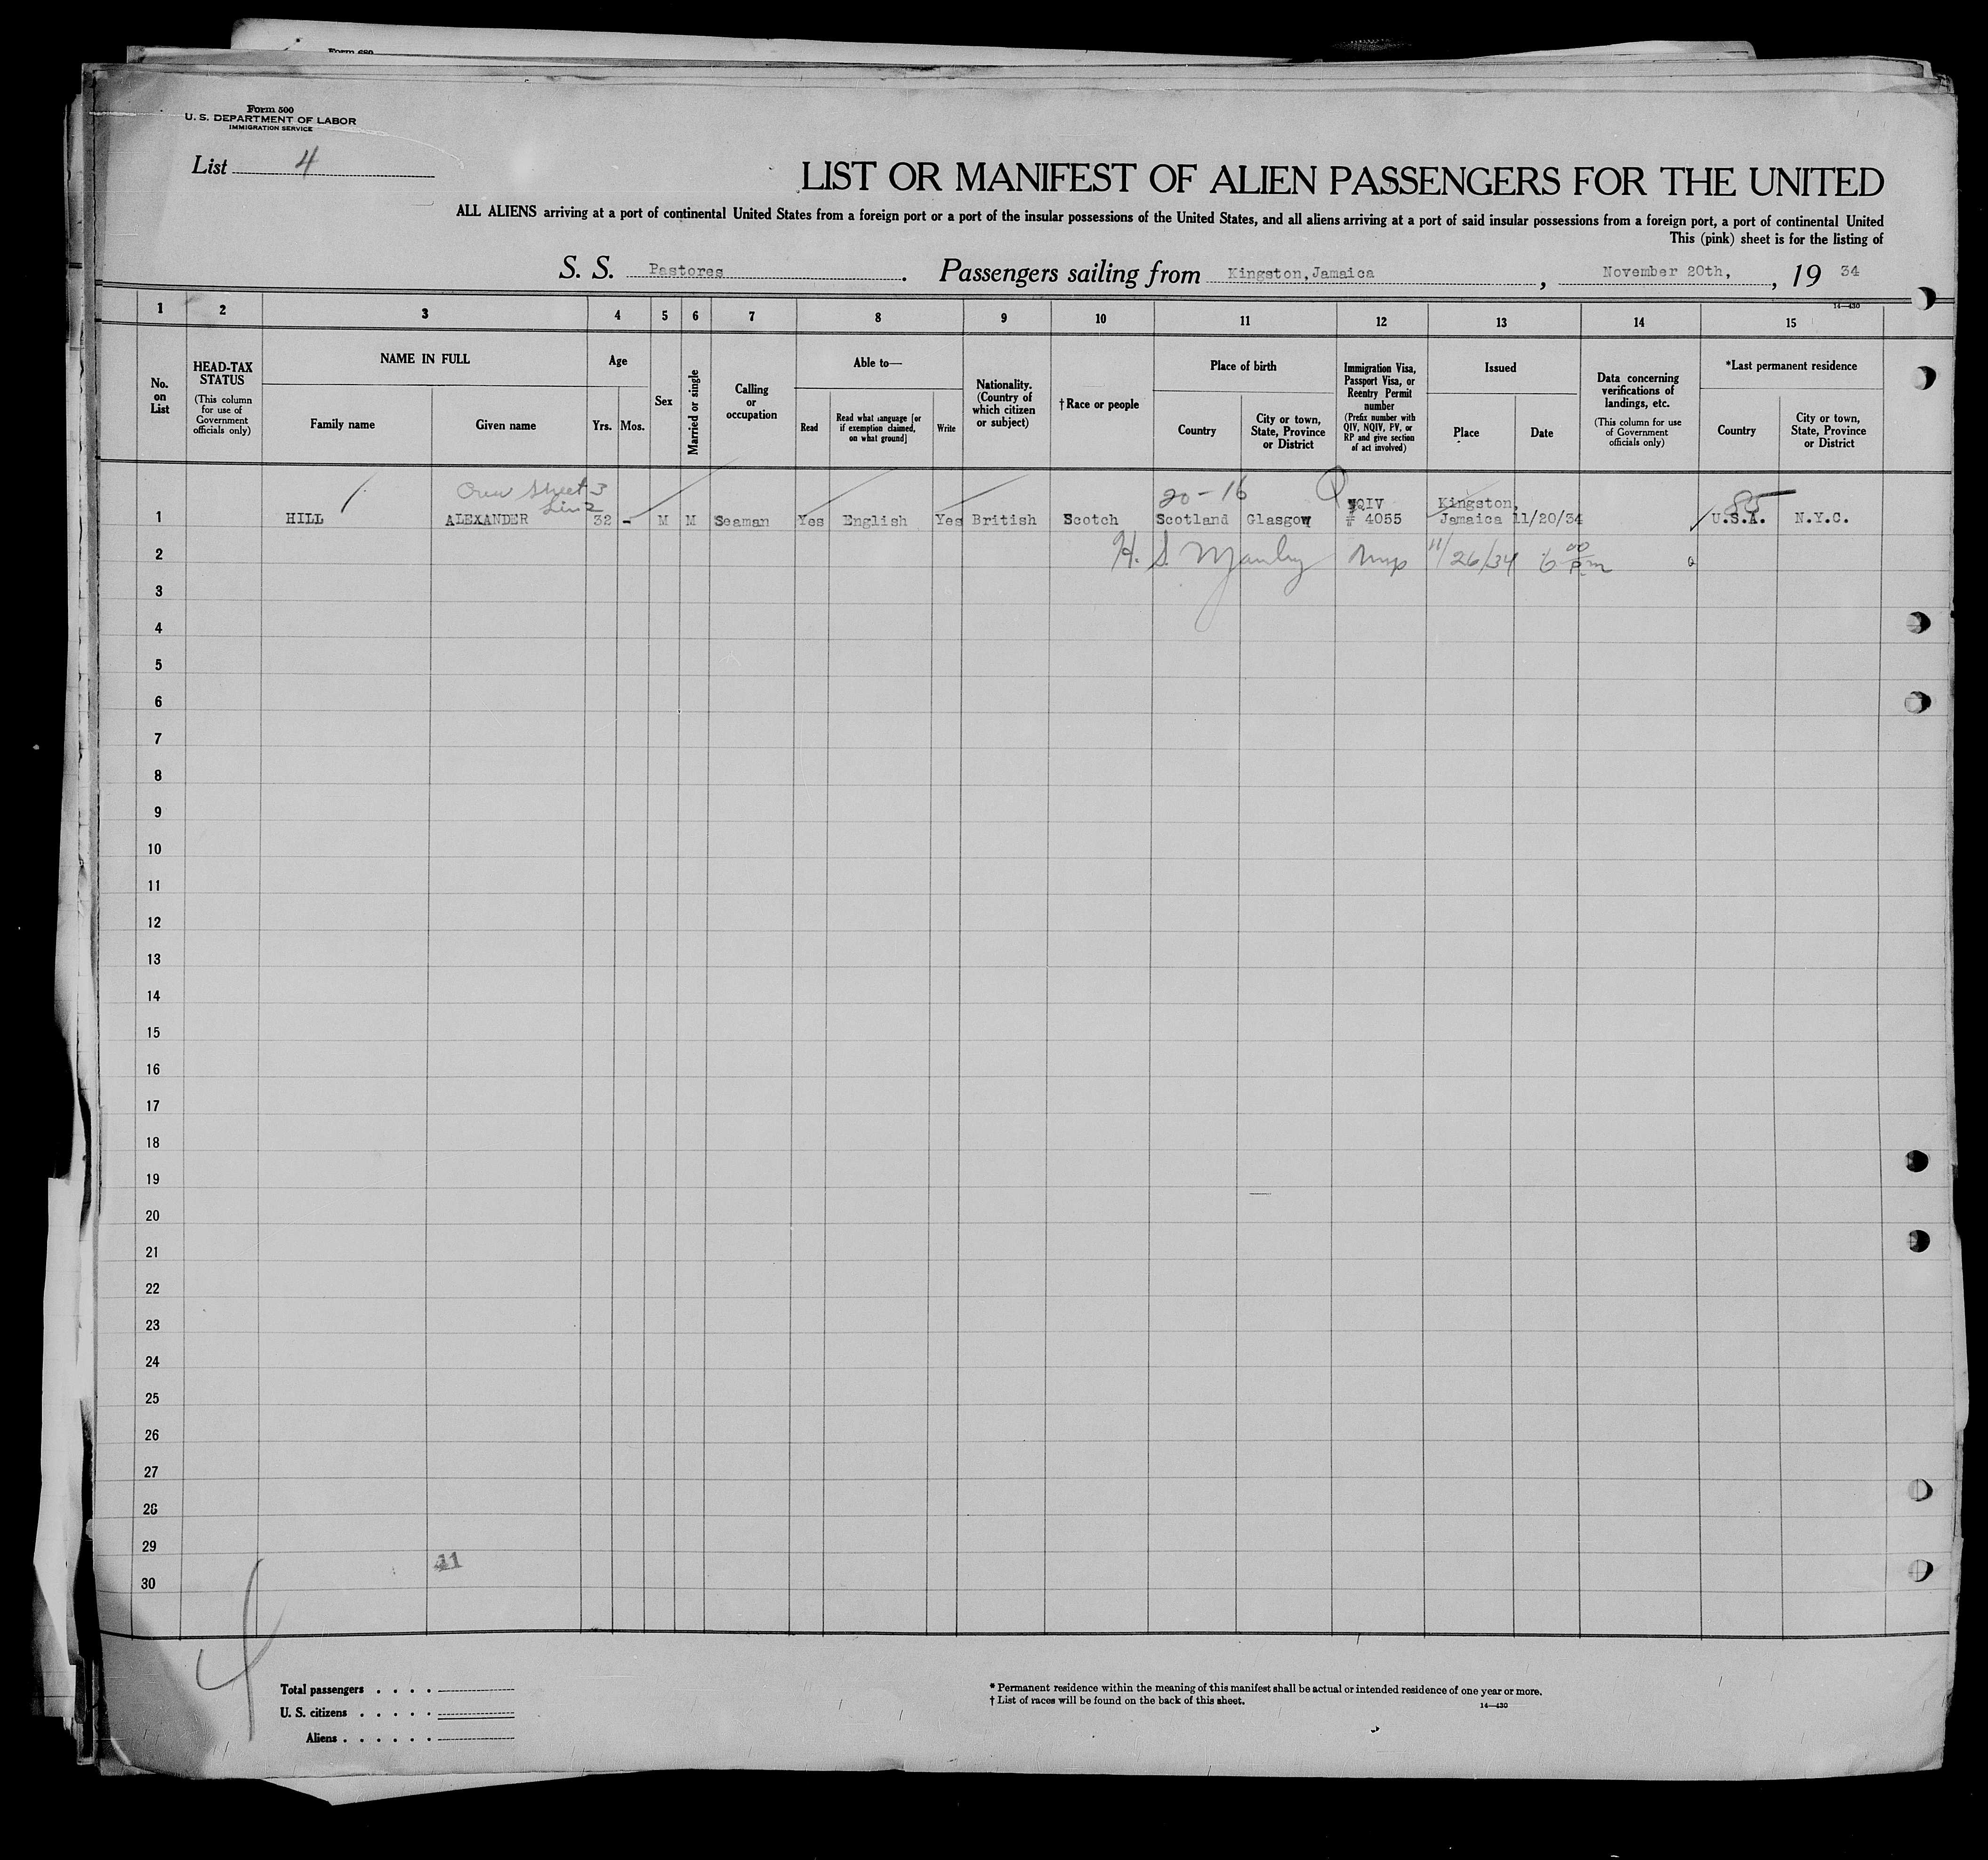 Form 689
Form 500
U. S. DEPARTMENT OF LABOR
IMMIGRATION SERVICE
List 4
LIST OR MANIFEST OF ALIEN PASSENGERS FOR THE UNITED
ALL ALIENS arriving at a port of continental United States from a foreign port or a port of the insular possessions of the United States, and all aliens arriving at a port of said insular possessions from a foreign port, a port of continental United
This (pink) sheet is for the listing of
S. S. Pastores. Passengers sailing from Kingston, Jamaica, November 20th, , 19 34
14—430
1 2 3 4 5 6 7 8 9 10 11 12 13 14 15
No. on List
HEAD-TAX STATUS
(This column for use of Government officials only)
NAME IN FULL
Family name
Given name
Age
Yrs. Mos.
Sex
Married or single
Calling or occupation
Able to—
Read
Read what language [or if exemption claimed, on what ground]
Write
Nationality. (Country of which citizen or subject)
†Race or people
Place of birth
Country
City or town, State, Province or District
Immigration Visa, Passport Visa, or Reentry Permit number
(Prefix number with QIV, NQIV, PV, or RP and give section of act involved)
Issued
Place
Date
Data concerning verifications of landings, etc.
(This column for use of Government officials only)
*Last permanent residence
Country
City or town, State, Province or District
Crew Sheet 3
Line 2
20-16
NQIV
Kingston,
85
1 HILL ALEXANDER 32 - M M Seaman Yes English Yes British Scotch Scotland Glasgow # 4055 Jamaica 11/20/34 U.S.A. N.Y.C.
2 H. S. Manley 11/26/34 6 00 pm
3
4
5
6
7
8
9
10
11
12
13
14
15
16
17
18
19
20
21
22
23
24
25
26
27
28
29
41
30
4
Total passengers . . . .
U. S. citizens . . . . .
Aliens . . . . . .
* Permanent residence within the meaning of this manifest shall be actual or intended residence of one year or more.
† List of races will be found on the back of this sheet.
14—430